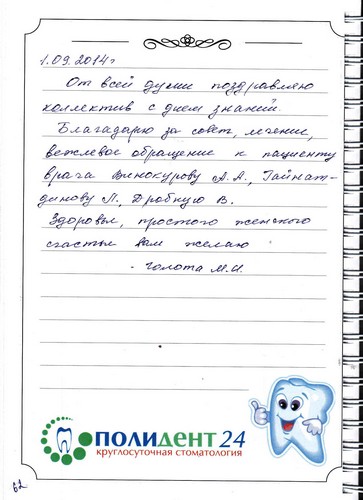 1.09.2014г
От всей души поздравляю
коллектив с днем знаний.
Благадарю за совет, лечение,
вежлевое обращение к пациенту
врача Винокурову А.А., Гайнат-
динову Л., Дробную В.
Здоровья, простого женского
счастья вам желаю
- Голота М.И.
ПОЛИДЕНТ 24
круглосуточная стоматология
62